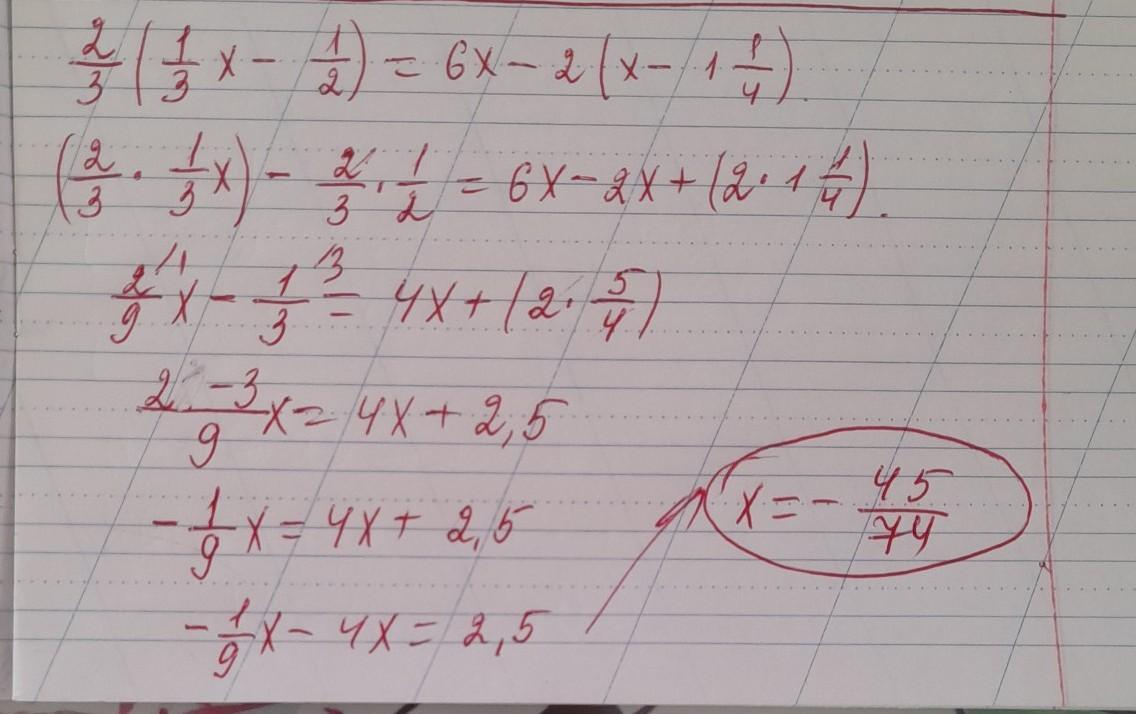 2/3 (1/3 x - 1/2) = 6x - 2 (x - 1 1/4).
(2/3 · 1/3 x) - 2/3 · 1/2 = 6x - 2x + (2 · 1 1/4).
2/9 /1 x - 1/3 /3 = 4x + (2 · 5/4)
2 - 3/9 x = 4x + 2,5
- 1/9 x = 4x + 2,5
- 1/9 x - 4x = 2,5
x = - 45/74